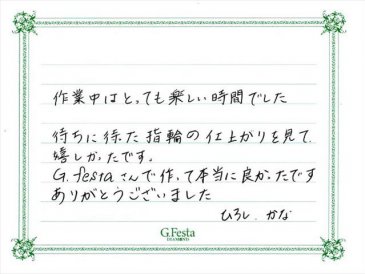 作業中はとっても楽しい時間でした
待ちに待った指輪の仕上がりを見て、
嬉しかったです。
G.festaさんで作って本当に良かったです
ありがとうございました
ひろし、かな
G.Festa
DIAMOND